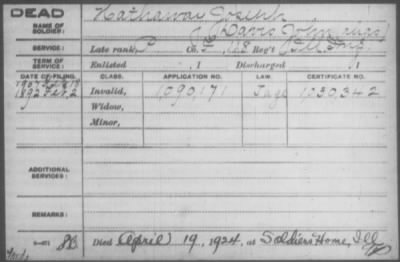 DEAD
NAME OF SOLDIER: Hathaway Joseph
Davis John
SERVICE: Late rank, P Co. F, 148 Reg't Ill Inf
TERM OF SERVICE: Enlisted , 1 Discharged 1
DATE OF FILING. CLASS. APPLICATION NO. LAW. CERTIFICATE NO.
1907
1892 Invalid, 1,090,171 1,030,342
Widow,
Minor,
ADDITIONAL SERVICES:
REMARKS:
Died April 19, 1924, at Soldiers Home, Ill